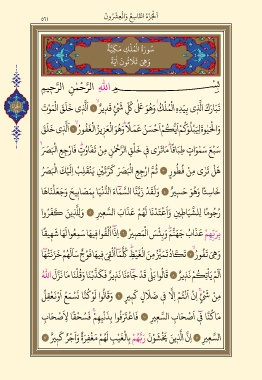 اَلْجُزْءُ التَّاسِعُ وَالْعِشْرُونَ
٥٦١
سُورَةُ الْمُلْكِ مَكِّيَّةٌ
وَهِيَ ثَلَاثُونَ اٰيَةً
بِسْمِ اللّٰهِ الرَّحْمٰنِ الرَّحٖيمِ
تَبَارَكَ الَّذٖي بِيَدِهِ الْمُلْكُ وَهُوَ عَلٰى كُلِّ شَيْءٍ قَدٖيرٌ ﴿١﴾ اَلَّذٖي خَلَقَ الْمَوْتَ
وَالْحَيٰوةَ لِيَبْلُوَكُمْ اَيُّكُمْ اَحْسَنُ عَمَلًا وَهُوَ الْعَزٖيزُ الْغَفُورُ ﴿٢﴾ اَلَّذٖي خَلَقَ
سَبْعَ سَمٰوَاتٍ طِبَاقًا مَا تَرٰى فٖي خَلْقِ الرَّحْمٰنِ مِنْ تَفَاوُتٍ فَارْجِعِ الْبَصَرَ
هَلْ تَرٰى مِنْ فُطُورٍ ﴿٣﴾ ثُمَّ ارْجِعِ الْبَصَرَ كَرَّتَيْنِ يَنْقَلِبْ اِلَيْكَ الْبَصَرُ
خَاسِئًا وَهُوَ حَسٖيرٌ ﴿٤﴾ وَلَقَدْ زَيَّنَّا السَّمَاءَ الدُّنْيَا بِمَصَابٖيحَ وَجَعَلْنَاهَا
رُجُومًا لِلشَّيَاطٖينِ وَاَعْتَدْنَا لَهُمْ عَذَابَ السَّعٖيرِ ﴿٥﴾ وَلِلَّذٖينَ كَفَرُوا
بِرَبِّهِمْ عَذَابُ جَهَنَّمَ وَبِئْسَ الْمَصٖيرُ ﴿٦﴾ اِذَا اُلْقُوا فٖيهَا سَمِعُوا لَهَا شَهٖيقًا
وَهِيَ تَفُورُ ﴿٧﴾ تَكَادُ تَمَيَّزُ مِنَ الْغَيْظِ كُلَّمَا اُلْقِيَ فٖيهَا فَوْجٌ سَاَلَهُمْ خَزَنَتُهَا
اَلَمْ يَأْتِكُمْ نَذٖيرٌ ﴿٨﴾ قَالُوا بَلٰى قَدْ جَاءَنَا نَذٖيرٌ فَكَذَّبْنَا وَقُلْنَا مَا نَزَّلَ اللّٰهُ
مِنْ شَيْءٍ اِنْ اَنْتُمْ اِلَّا فٖي ضَلَالٍ كَبٖيرٍ ﴿٩﴾ وَقَالُوا لَوْ كُنَّا نَسْمَعُ اَوْ نَعْقِلُ
مَا كُنَّا فٖي اَصْحَابِ السَّعٖيرِ ﴿١٠﴾ فَاعْتَرَفُوا بِذَنْبِهِمْ فَسُحْقًا لِاَصْحَابِ
السَّعٖيرِ ﴿١١﴾ اِنَّ الَّذٖينَ يَخْشَوْنَ رَبَّهُمْ بِالْغَيْبِ لَهُمْ مَغْفِرَةٌ وَاَجْرٌ كَبٖيرٌ ﴿١٢﴾